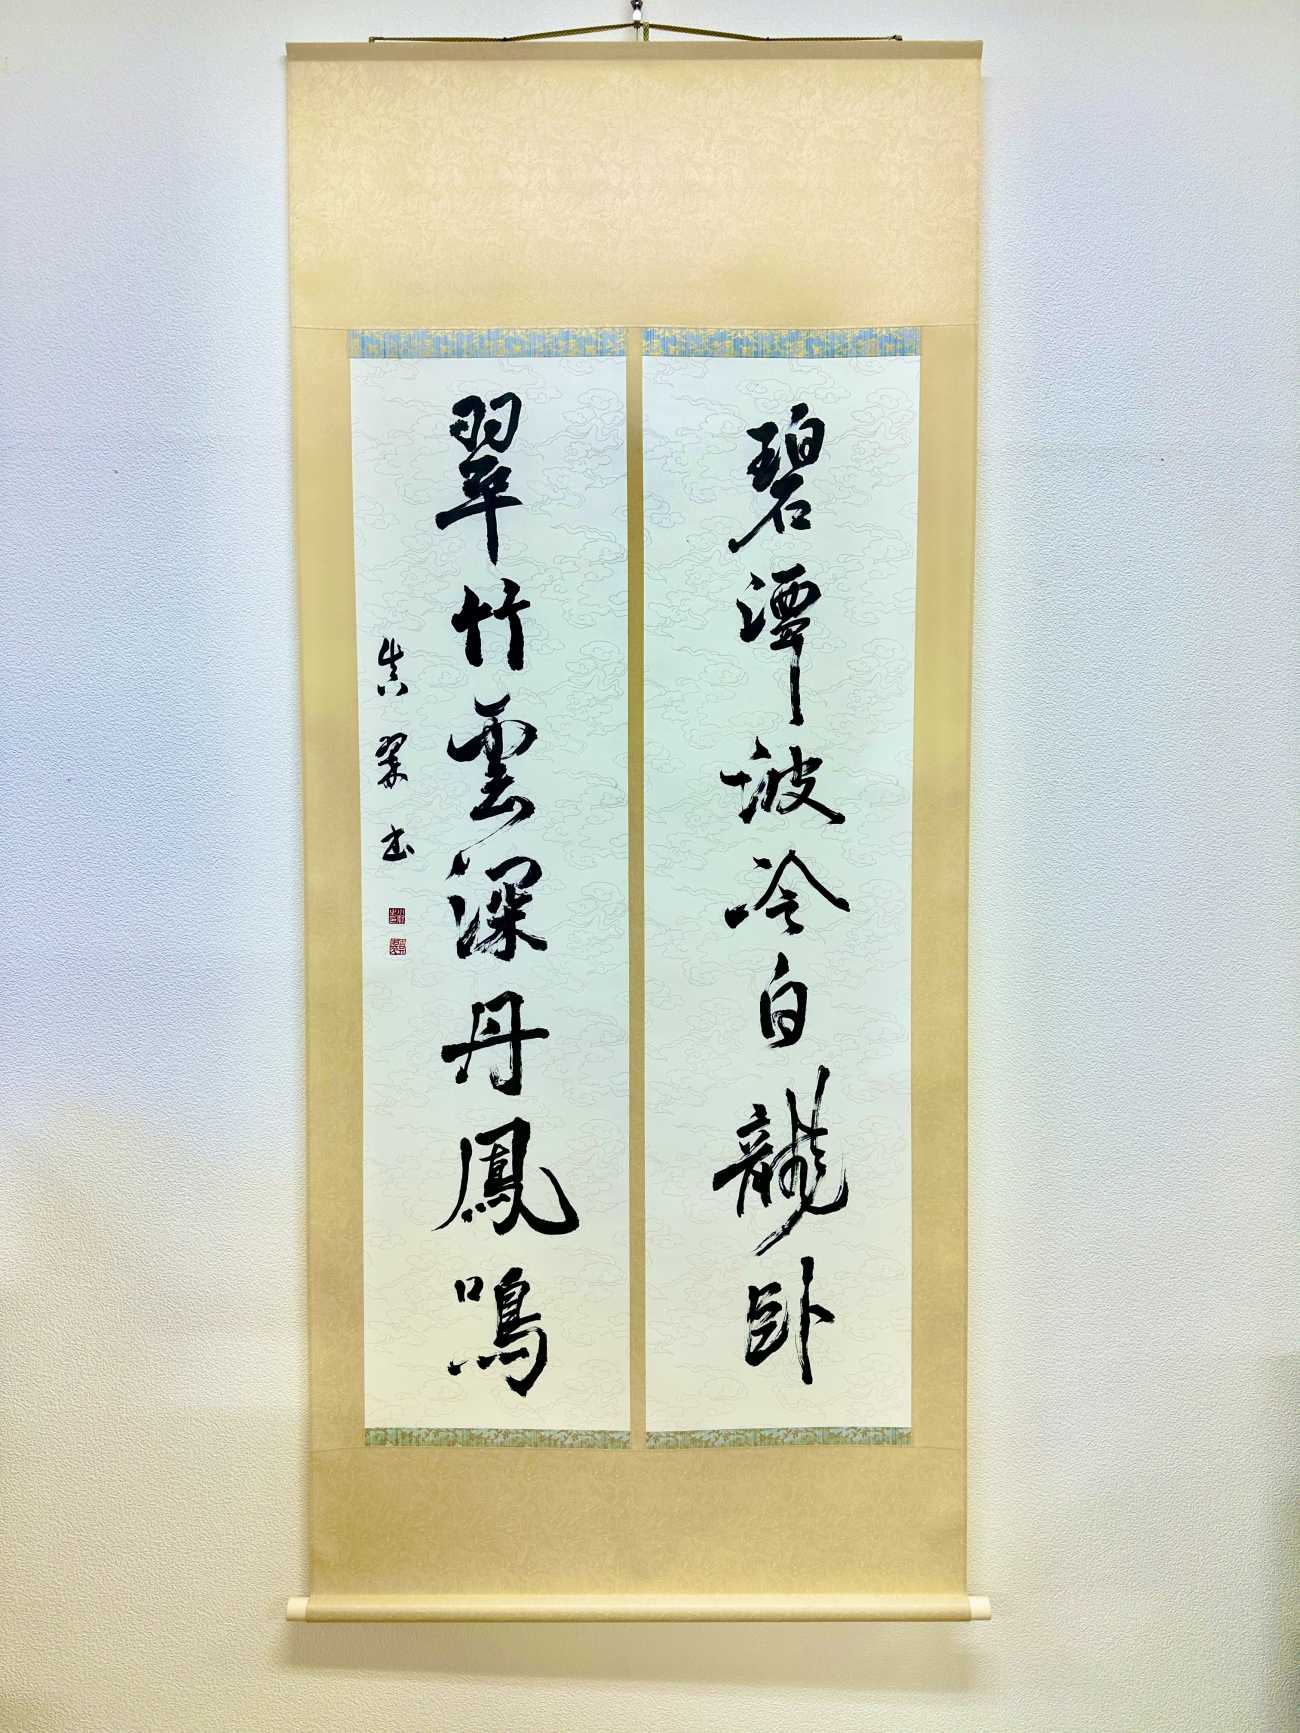 碧潭波冷白龍臥
翠竹雲深丹鳳鳴
真翠書